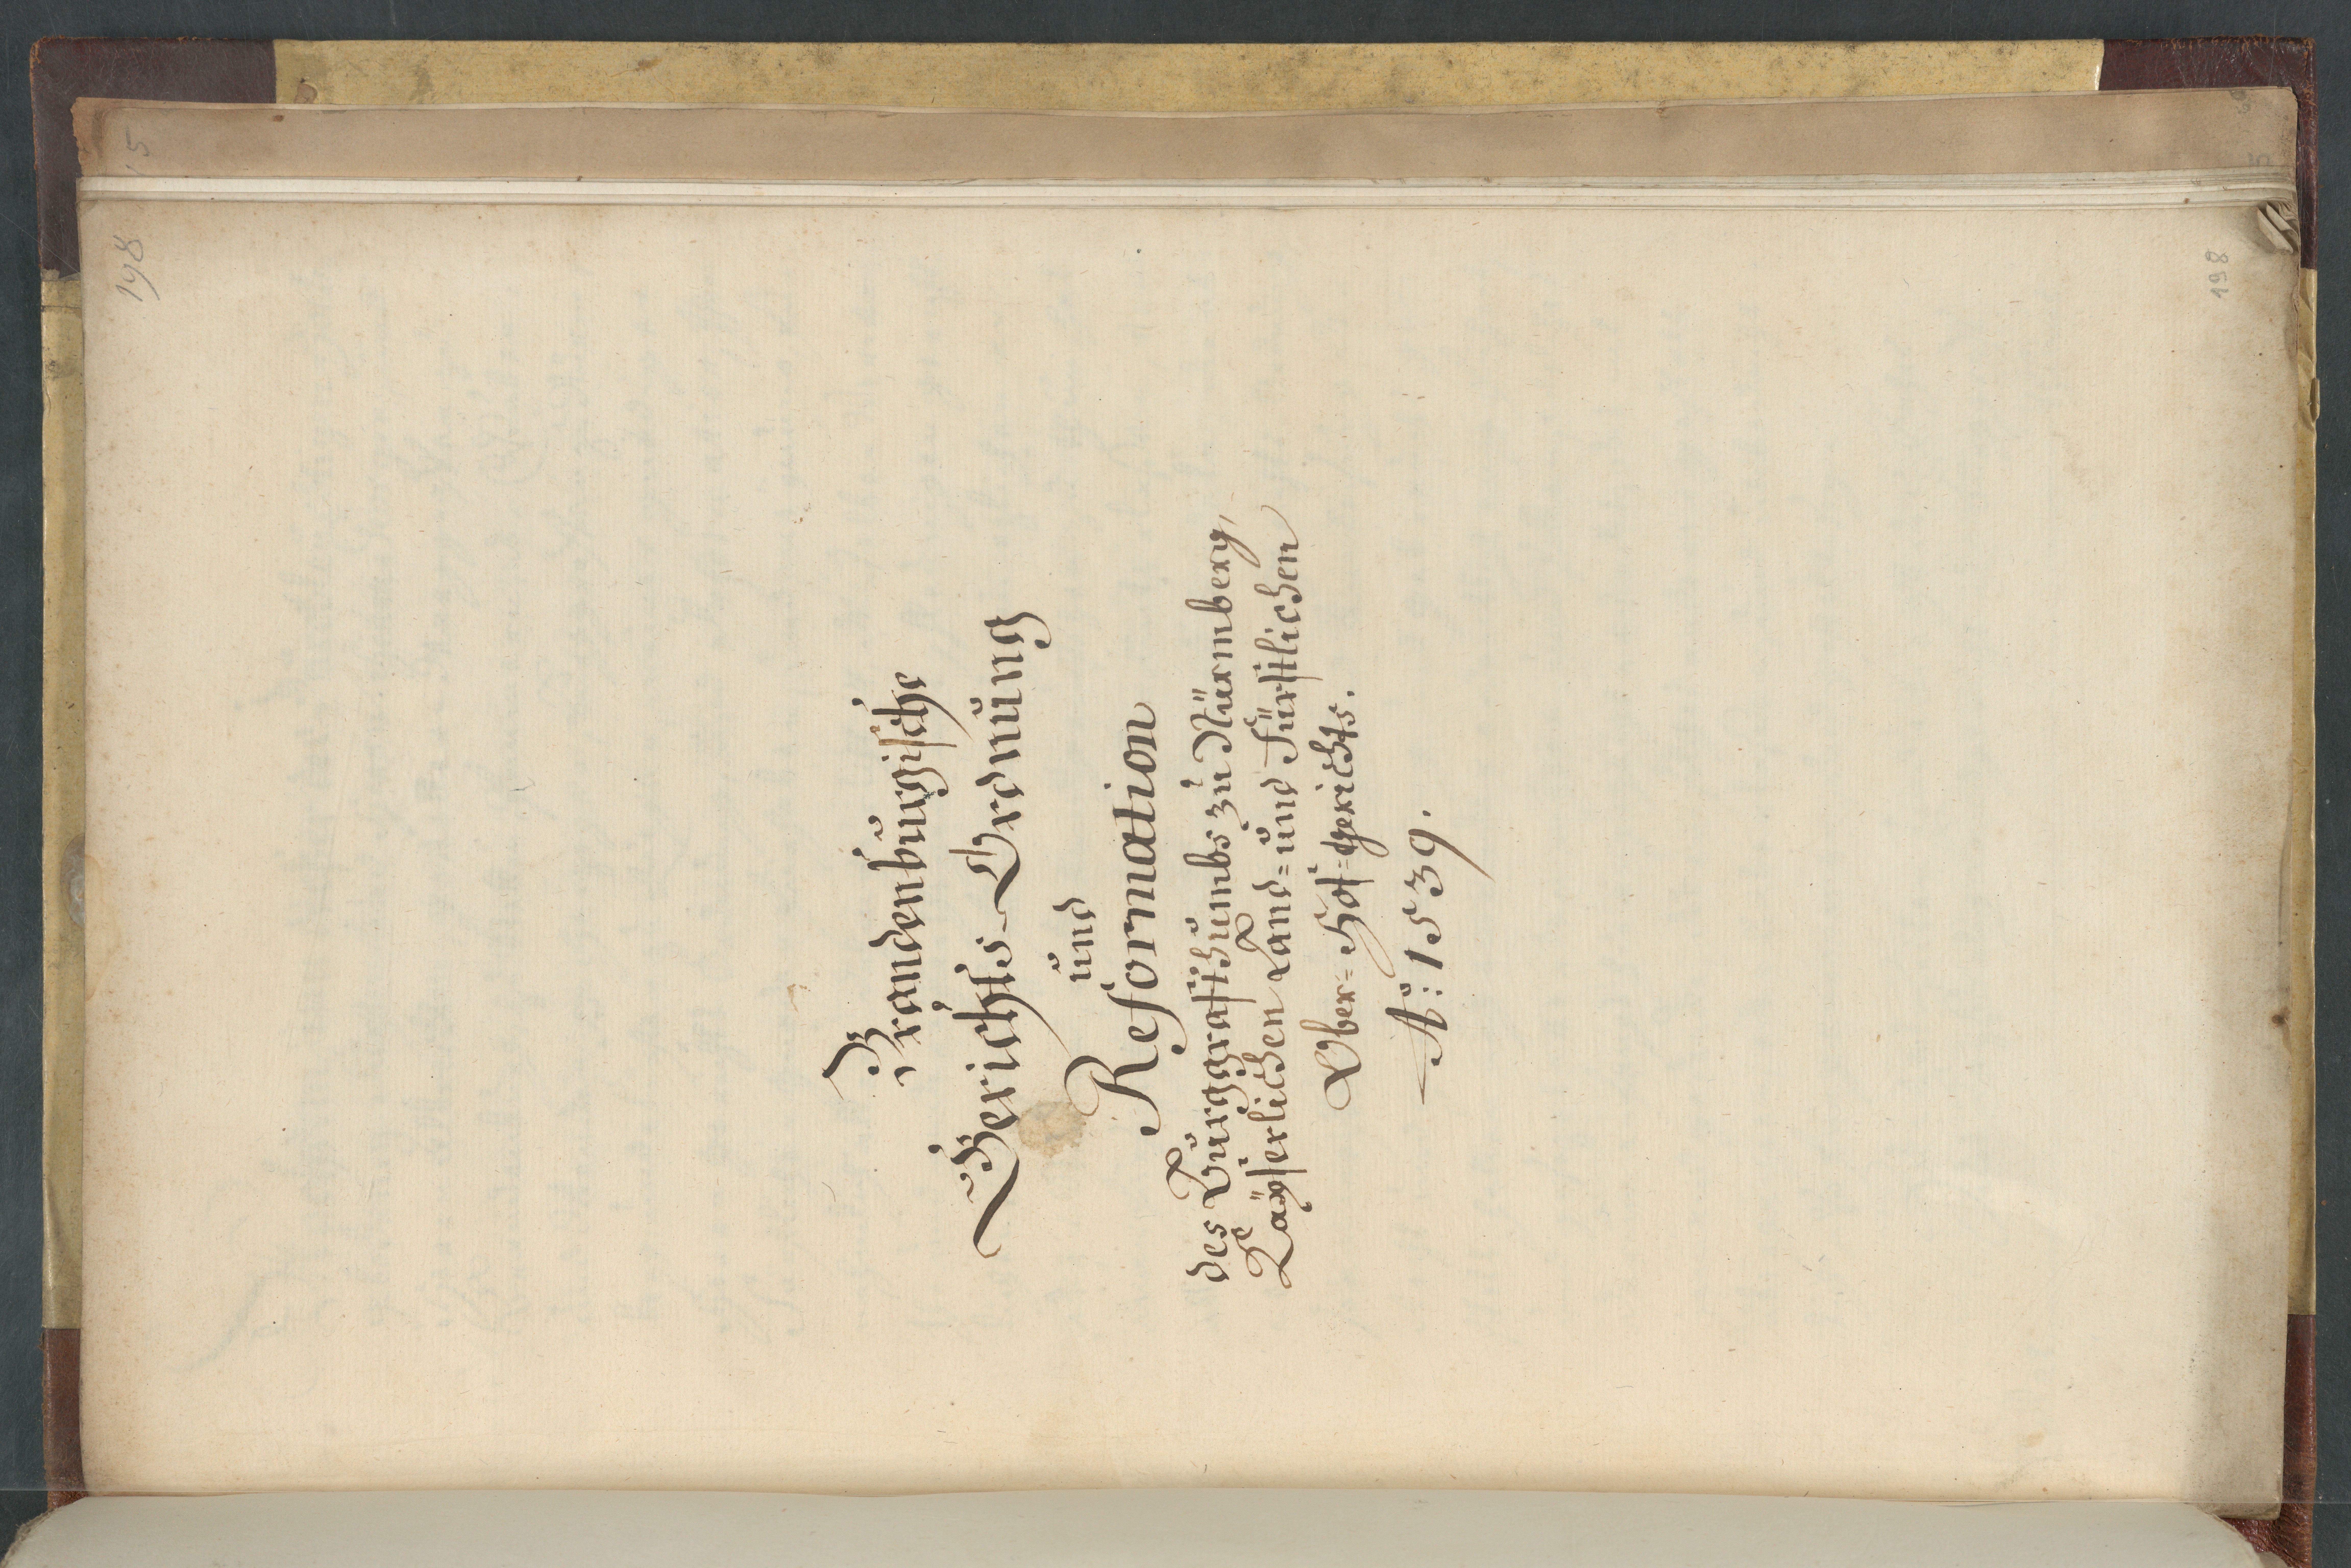 198
Brandenburgische
Gerichts-Ordnung
und
Reformation
des Burggrafthumbs zu Nürmberg,
Kayserlichen Land= und Fürstlichen
Ober=Hof=gerichts.
Aº: 1539.
198